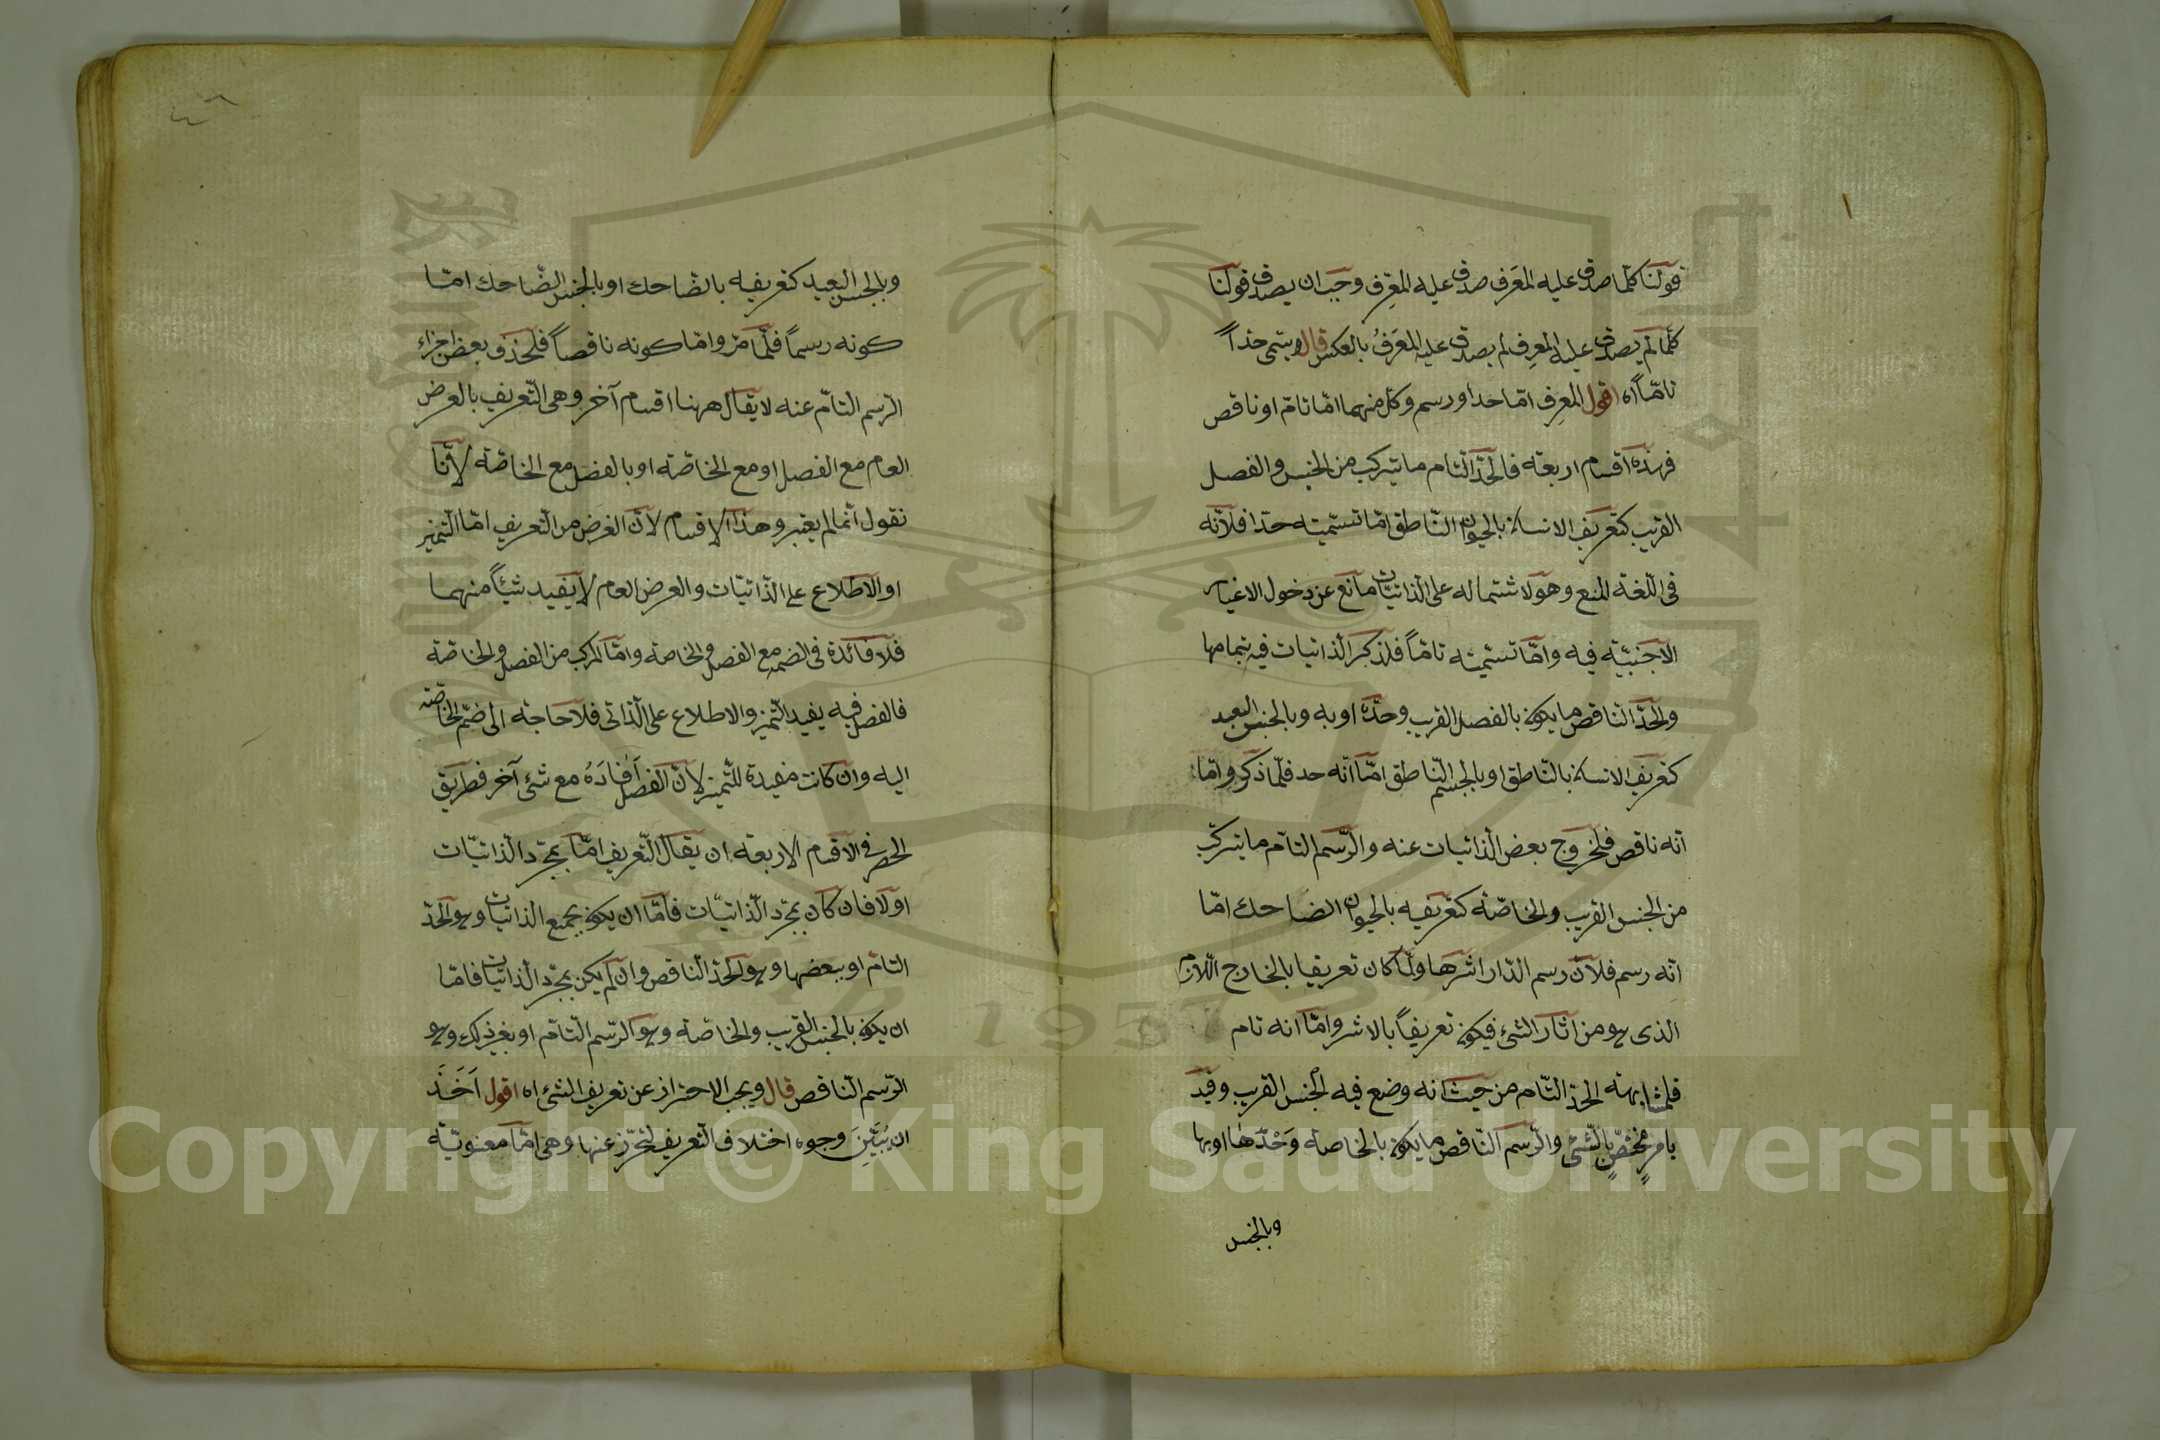 قولنا كلما صدق عليه المعَرف صدق عليه المعرِف وجب ان يصدق قولنا
كلما لم يصدق عليه المعرِف لم يصدق عليه المعَرفُ بالعكس قال ويسمى حداً
تامّاً اه اقول المعرِف امّا حد او رسم وكل منهما امّا تامّ او ناقص
فهذه اقسام اربعة فالحدّ التام ما يتركب من الجنس والفصل
القريب كتعريف الانسان بالحيوان الناطق امّا تسميته حدا فلانّه
فى اللّغة المنع وهو لاشتماله على الذاتيات مانع عن دخول الاغيار
الاجنبيّة فيه وامّا تسميته تامّاً فلذكر الذاتيات فيه بتمامها
والحدّ الناقص ما يكون بالفصل القريب وحدَه او به وبالجنس البعيد
كتعريف الانسان بالناطق او بالجسم النّاطق امّا انّه حد فلمّا ذكر وامّا
انّه ناقص فلخروج بعض الذاتيات عنه والرّسم التام ما يتركّب
من الجنس القريب والخاصّة كتعريفه بالحيوان الضاحك امّا
انّه رسم فلانّ رسم الدّار اثرها ولمّا كان تعريفا بالخارج اللازم
الذى هو من اثار الشئ فيكون تعريفاً بالاثر وامّا انه تام
فلمشابهته الحدّ التّام من حيث انه وضع فيه الجنس القريب وقيّد
بامرٍ مختصّ بالشئ والرّسم الناقص ما يكون بالخاصة وَحْدَها او بها
وبالجنس
وبالجنس البعيد كتعريفه بالضّاحك او بالجنس الضّاحك امّا
كونه رسماً فلمّا مرّ وامّا كونه ناقصاً فلحذف بعض اجزاء
الرّسم التامّ عنه لا يقال ههنا اقسام آخر وهى التّعريف بالعرض
العام مع الفصل او مع الخاصّة او بالفصل مع الخاصّة لانّا
نقول انّما لم يعتبر وهذا الاقسام لانّ الغرض من التّعريف امّا التّميز
او الاطلاع على الذّاتيّات والعرض العام لا يفيد شيئاً منهما
فلا فائدة فى الضمه مع الفصل والخاصة وامّا المركب من الفصل والخاصّة
فالفصل فيه يفيد التّميز والاطلاع على الذّاتى فلا حاجة الى ضمّ الخاصّة
اليه وان كانت مفيدة للتّميز لانّ الفصل اَفادَهُ مع شئ آخر فطريق
الحصر فى الاقسام الاربعة ان يقال التّعريف امّا بمجرّد الذّاتيّات
او لا فان كان بمجرّد الذّاتيّات فامّا ان يكون بجميع الذاتيّات وهو الحدّ
التامّ او ببعضها وهو الحدّ الناقص وان لم يكن بمجرّد الذاتيّات فامّا
ان يكون بالجنس القريب والخاصّة وهو الرّسم التّامّ او بغير ذلك وهو
الرّسم النّاقص قال ويجب الاحتراز عن تعريف الشئ اه اقول اَخَذَ
ان يُبيّنَ وجوه اختلاف التّعريف لتحرّز عنها وهى امّا معنويّة
Copyright © King Saud University
1957